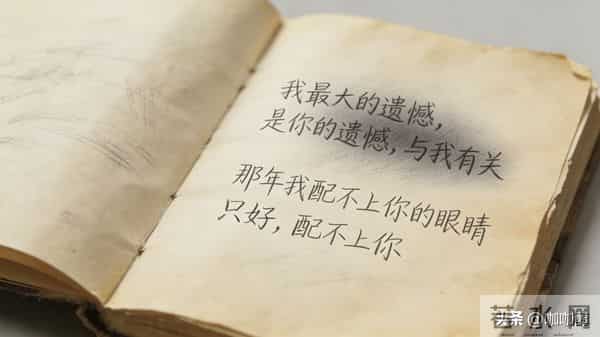 我最大的遗憾，
是你的遗憾，与我有关
那年我配不上你的眼睛
只好，配不上你